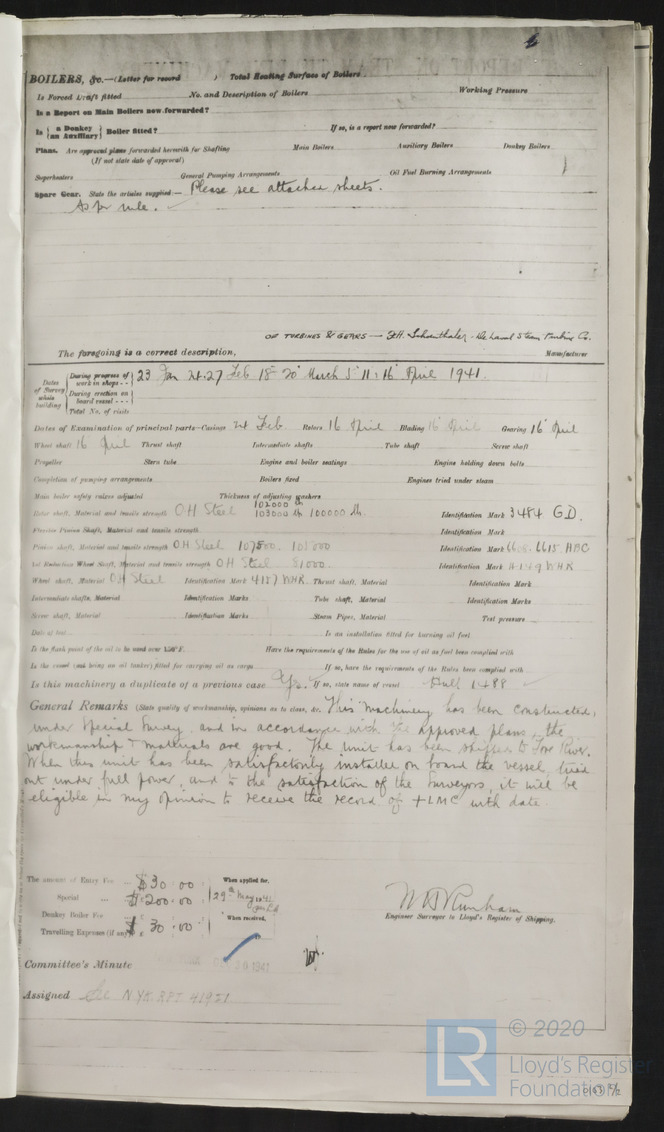 BOILERS, &c.—(Letter for record ) Total Heating Surface of Boilers
Is Forced Draft fitted No. and Description of Boilers Working Pressure
Is a Report on Main Boilers now forwarded?
Is { a Donkey / an Auxiliary } Boiler fitted? If so, is a report now forwarded?
Plans. Are approved plans forwarded herewith for Shafting Main Boilers Auxiliary Boilers Donkey Boilers
(If not state date of approval)
Superheaters General Pumping Arrangements Oil Fuel Burning Arrangements
Spare Gear. State the articles supplied:— Please see attached sheets.
As per rule.
OF TURBINES & GEARS — De Laval Steam Turbine Co.
The foregoing is a correct description, Manufacturer
Dates of Survey while building
During progress of work in shops - - 23 Jan 24. 27 Feb 18 - 20 March 5. 11. 16 April 1941.
During erection on board vessel - - -
Total No. of visits
Dates of Examination of principal parts—Casings 24 Feb Rotors 16 April Blading 16 April Gearing 16 April
Wheel shaft 16 April Thrust shaft Intermediate shafts Tube shaft Screw shaft
Propeller Stern tube Engine and boiler seatings Engine holding down bolts
Completion of pumping arrangements Boilers fixed Engines tried under steam
Main boiler safety valves adjusted Thickness of adjusting washers
102000 lb
Rotor shaft, Material and tensile strength O.H Steel 103000 lb 100000 lb. Identification Mark 3484 G.D.
Flexible Pinion Shaft, Material and tensile strength Identification Mark
Pinion shaft, Material and tensile strength O.H Steel 107500. 108000 Identification Mark 6615. HBC
1st Reduction Wheel Shaft, Material and tensile strength O.H Steel 81000. Identification Mark WHK
Wheel shaft, Material O.H Steel Identification Mark 4157 WHK. Thrust shaft, Material Identification Mark
Intermediate shafts, Material Identification Marks Tube shaft, Material Identification Marks
Screw shaft, Material Identification Marks Steam Pipes, Material Test pressure
Date of test Is an installation fitted for burning oil fuel
Is the flash point of the oil to be used over 150°F. Have the requirements of the Rules for the use of oil as fuel been complied with
Is the vessel (not being an oil tanker) fitted for carrying oil as cargo If so, have the requirements of the Rules been complied with
Is this machinery a duplicate of a previous case Yes. If so, state name of vessel Hull 1488
General Remarks (State quality of workmanship, opinions as to class, &c. This machinery has been constructed,
under special survey and in accordance with the approved plans, the
workmanship & materials are good. The unit has been shipped to Fore River.
When this unit has been satisfactorily installed on board the vessel, tried
out under full power, and to the satisfaction of the Surveyors, it will be
eligible in my opinion to receive the record of +LMC with date.
The amount of Entry Fee $ 30.00 When applied for,
Special $ 200.00 29th May 1941
Donkey Boiler Fee When received,
Travelling Expenses (if any) $ 30.00
Engineer Surveyor to Lloyd's Register of Shipping.
Committee's Minute 1941
Assigned See N.YK. RPT 41951
© 2020
LR
Lloyd's Register
Foundation